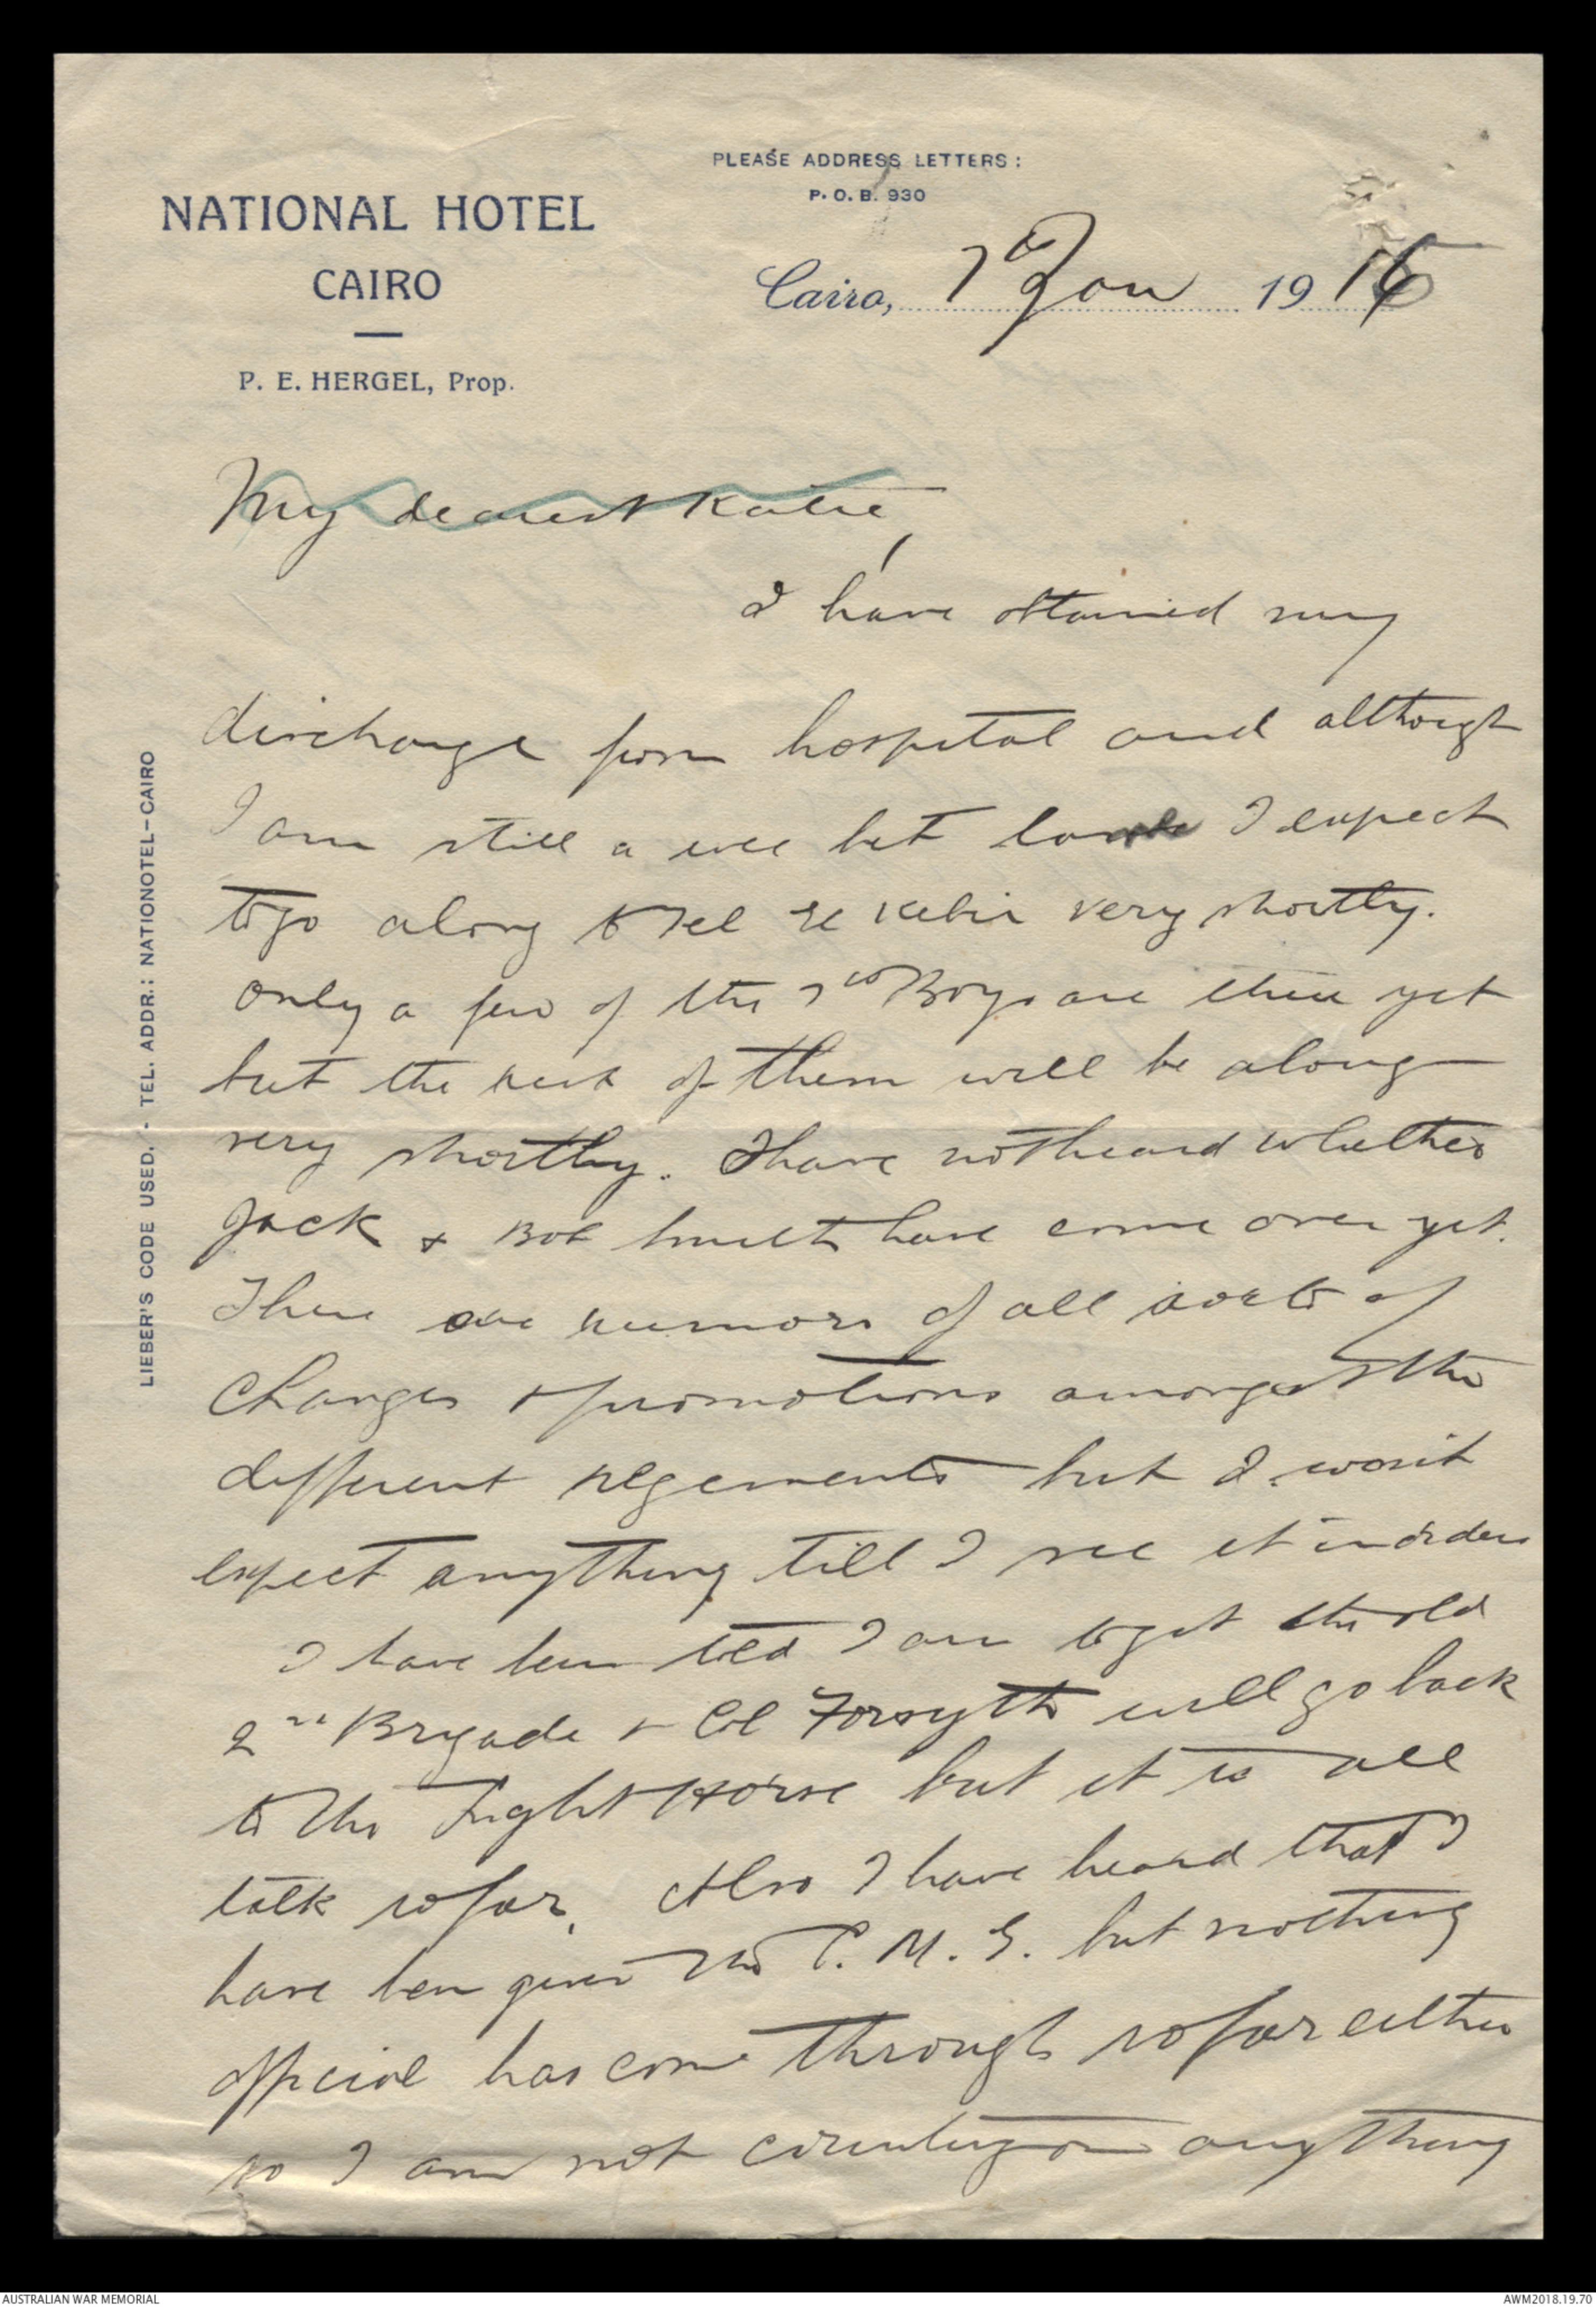 PLEASE ADDRESS LETTERS :
P. O. B. 930
NATIONAL HOTEL
CAIRO
P. E. HERGEL, Prop.
Cairo, 7th Jan 1916
LIEBER'S CODE USED. - TEL. ADDR.: NATIONOTEL-CAIRO
My dearest Katie,
I have obtained my
discharge from hospital and although
I am still a wee bit I expect
to go along to Tel El Kebir very shortly.
Only a few of the 7th Boys are there yet
but the rest of them will be along
very shortly. I have not heard whether
Jack & Bob have come over yet.
There are rumors of all sorts of
changes & promotions amongst the
different regements but I won't
expect anything till I see it in orders
I have been told I am to get the old
2nd Brigade & Col Forsyth will go back
to the Light Horse but it is all
talk so far. Also I have heard that I
have been given the C. M. G. but nothing
official has come through so far either
so I am not counting on anything
AUSTRALIAN WAR MEMORIAL
AWM2018.19.70